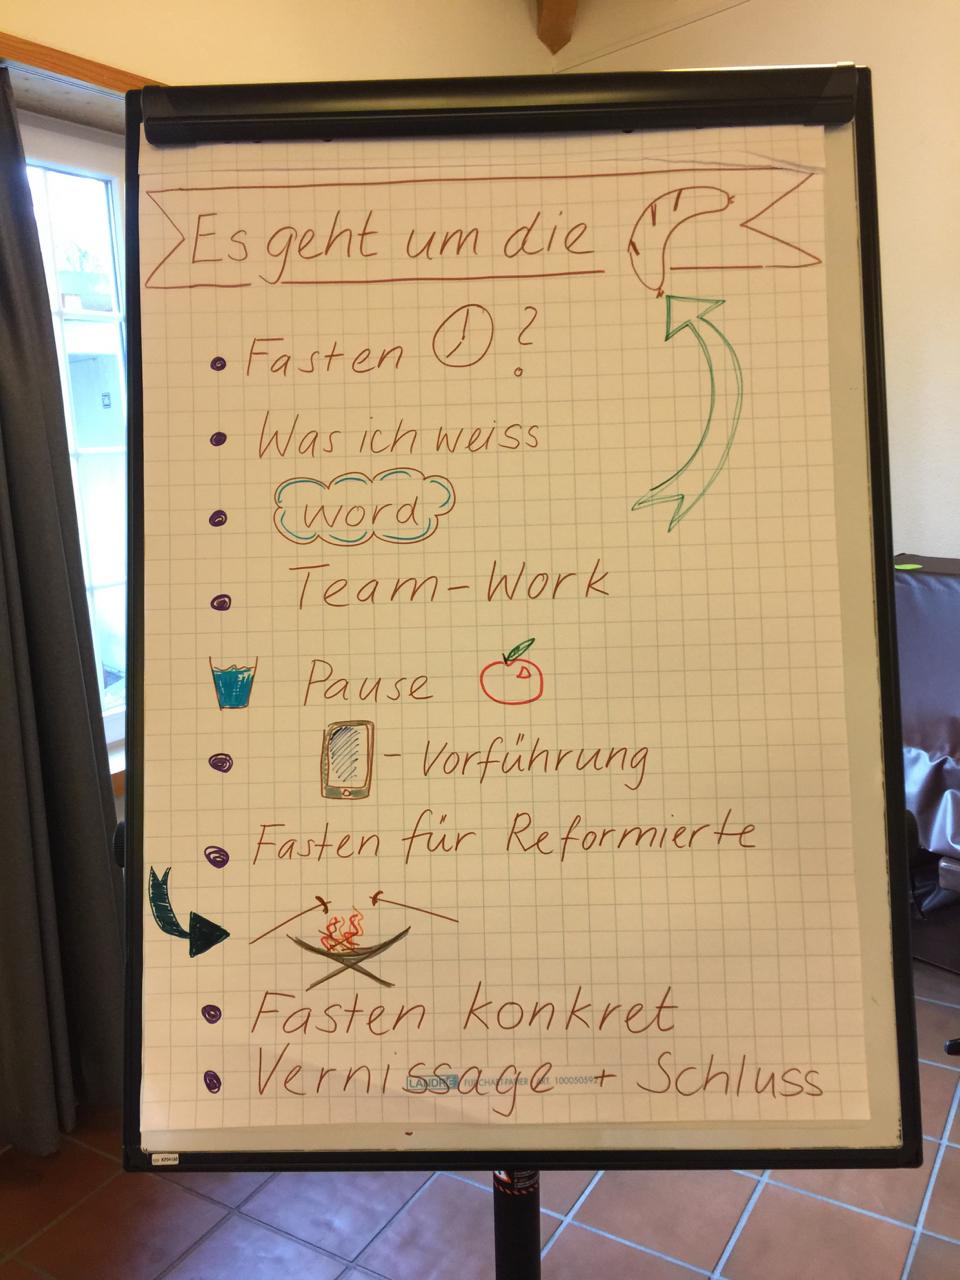 Es geht um die
Fasten ?
Was ich weiss
word
Team-Work
Pause
- Vorführung
Fasten für Reformierte
Fasten konkret
Vernissage + Schluss
LANDRÉ FLIPCHART-PAPIER ART. 100050592